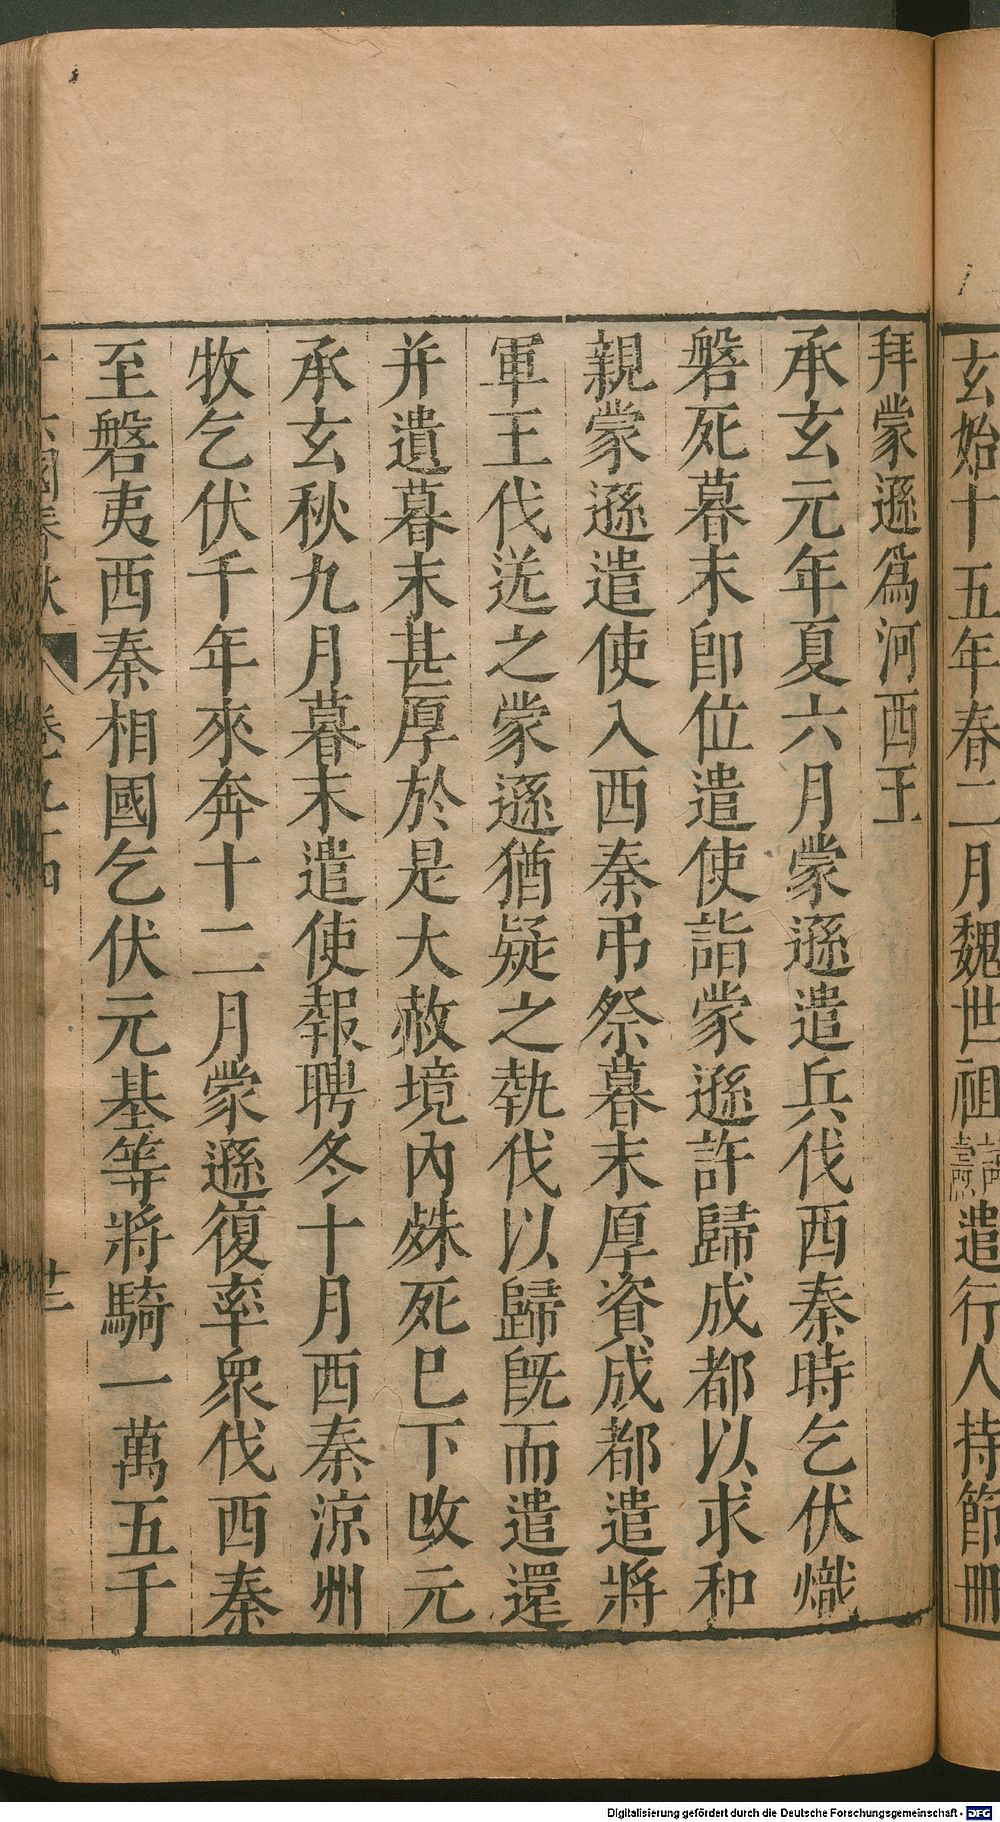 玄始十五年春二月魏世祖諱燾遣行人持節冊
拜蒙遜爲河西王
承玄元年夏六月蒙遜遣兵伐西秦時乞伏熾
磐死暮末卽位遣使詣蒙遜許歸成都以求和
親蒙遜遣使入西秦弔祭暮末厚資成都遣將
軍王伐送之蒙遜猶疑之執伐以歸旣而遣還
并遺暮末甚厚於是大赦境內殊死已下改元
承玄秋九月暮末遣使報聘冬十月西秦涼州
牧乞伏千年來奔十二月蒙遜復率衆伐西秦
至磐夷西秦相國乞伏元基等將騎一萬五千
六國春秋 卷九十四 廿二
Digitalisierung gefördert durch die Deutsche Forschungsgemeinschaft - DFG